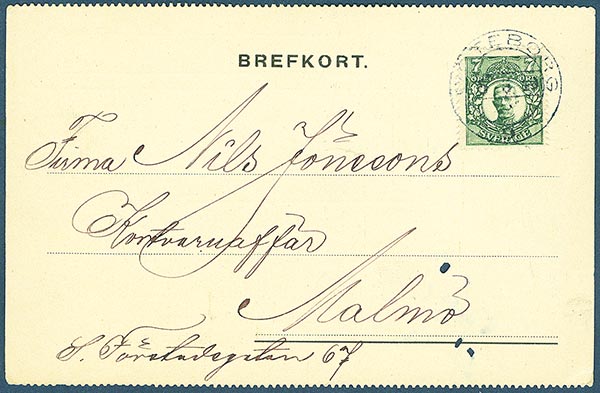 BREFKORT.
GÖTEBORG
7 7
ÖRE ÖRE
SVERIGE
Firma Nils Jönssons
Kortvaruaffär
Malmö
S. Förstadsgatan 67